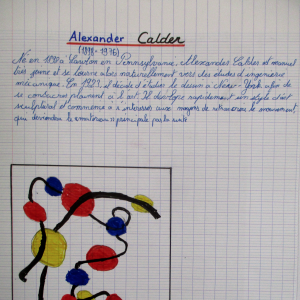 Alexander Calder
(1898-1976)
Né en 1898 à Lawton en Pennsylvanie, Alexander Calder est manuel
très jeune et se tourne alors naturellement vers des études d'ingénierie
mécanique. En 1923, il décide d'étudier le dessin à New-York afin de
se consacrer plainement à l'art. Il développe rapidement un style
sculptural et commence à s'intéresser aux moyens de retranscrire le mouvement,
qui deviendra la principale par la suite